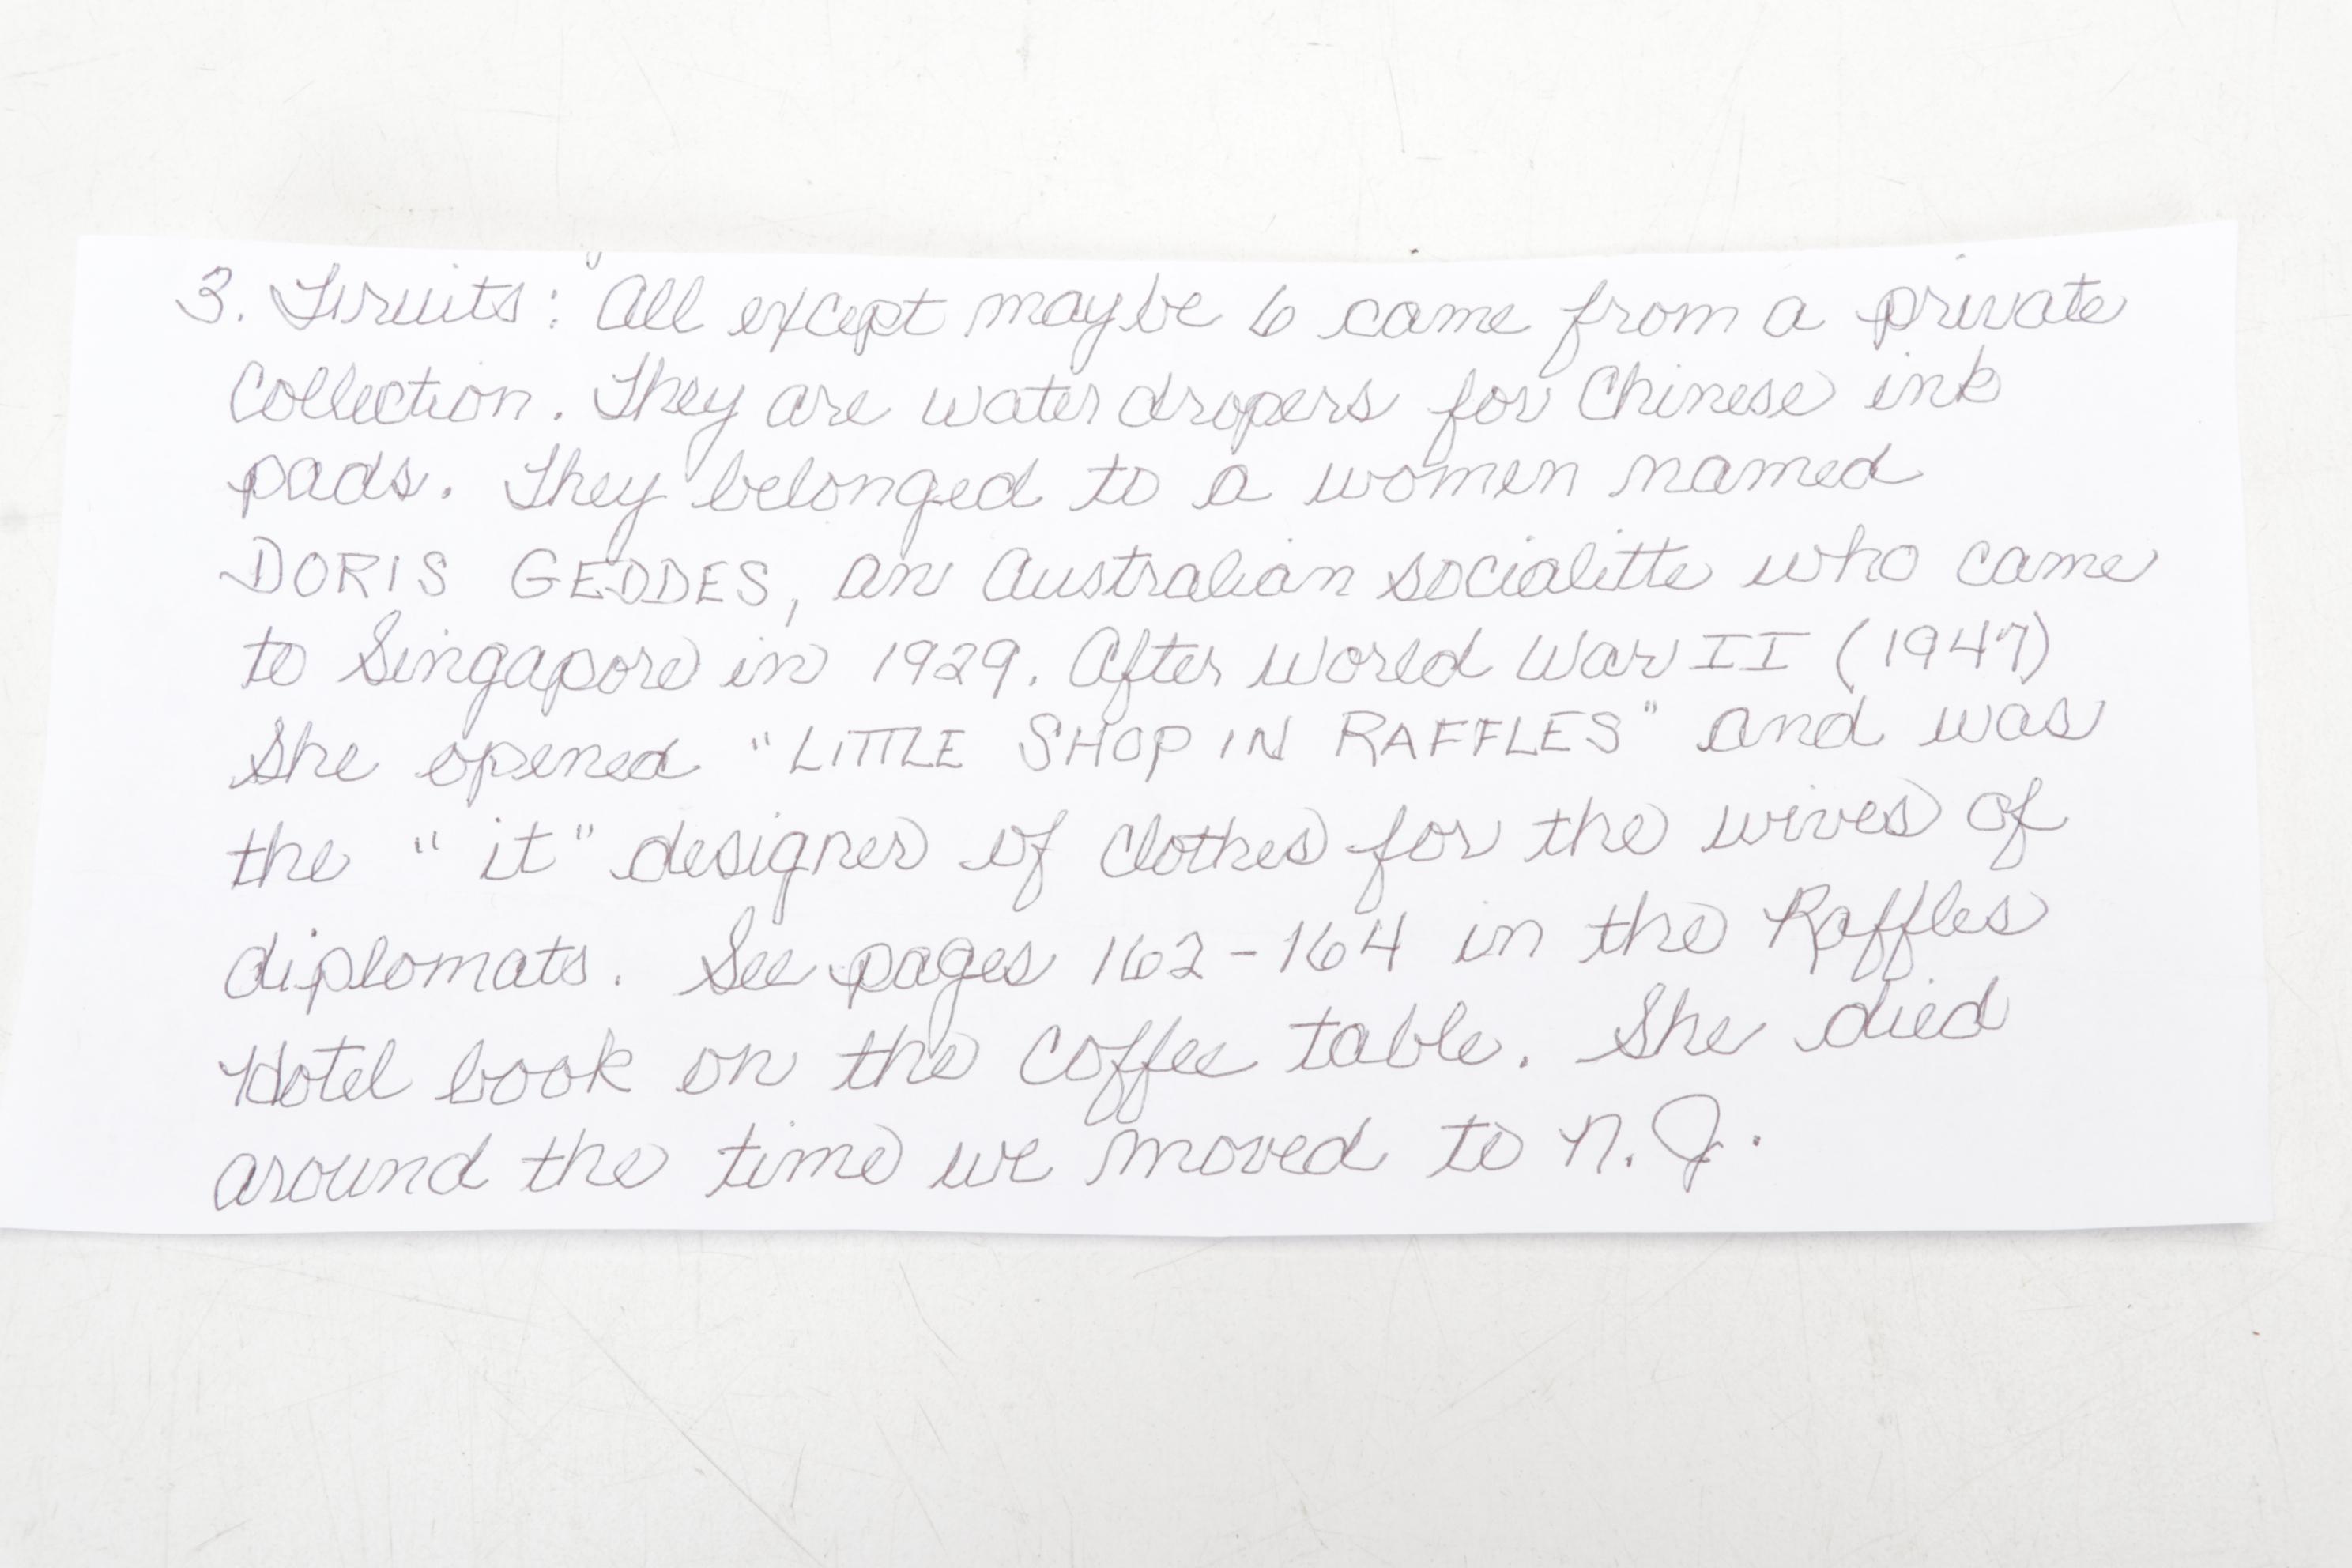 3. Fruits: All except maybe 6 came from a private
Collection. They are water dropers for Chinese ink
pads. They belonged to a women named
DORIS GEDDES, an Australian socialitte who came
to Singapore in 1929. After World War II (1947)
She opened "LITTLE SHOP IN RAFFLES" and was
the "it" designer of clothes for the wives of
diplomats. See pages 162-164 in the Raffles
Hotel book on the coffee table. She died
around the time we moved to N.J.